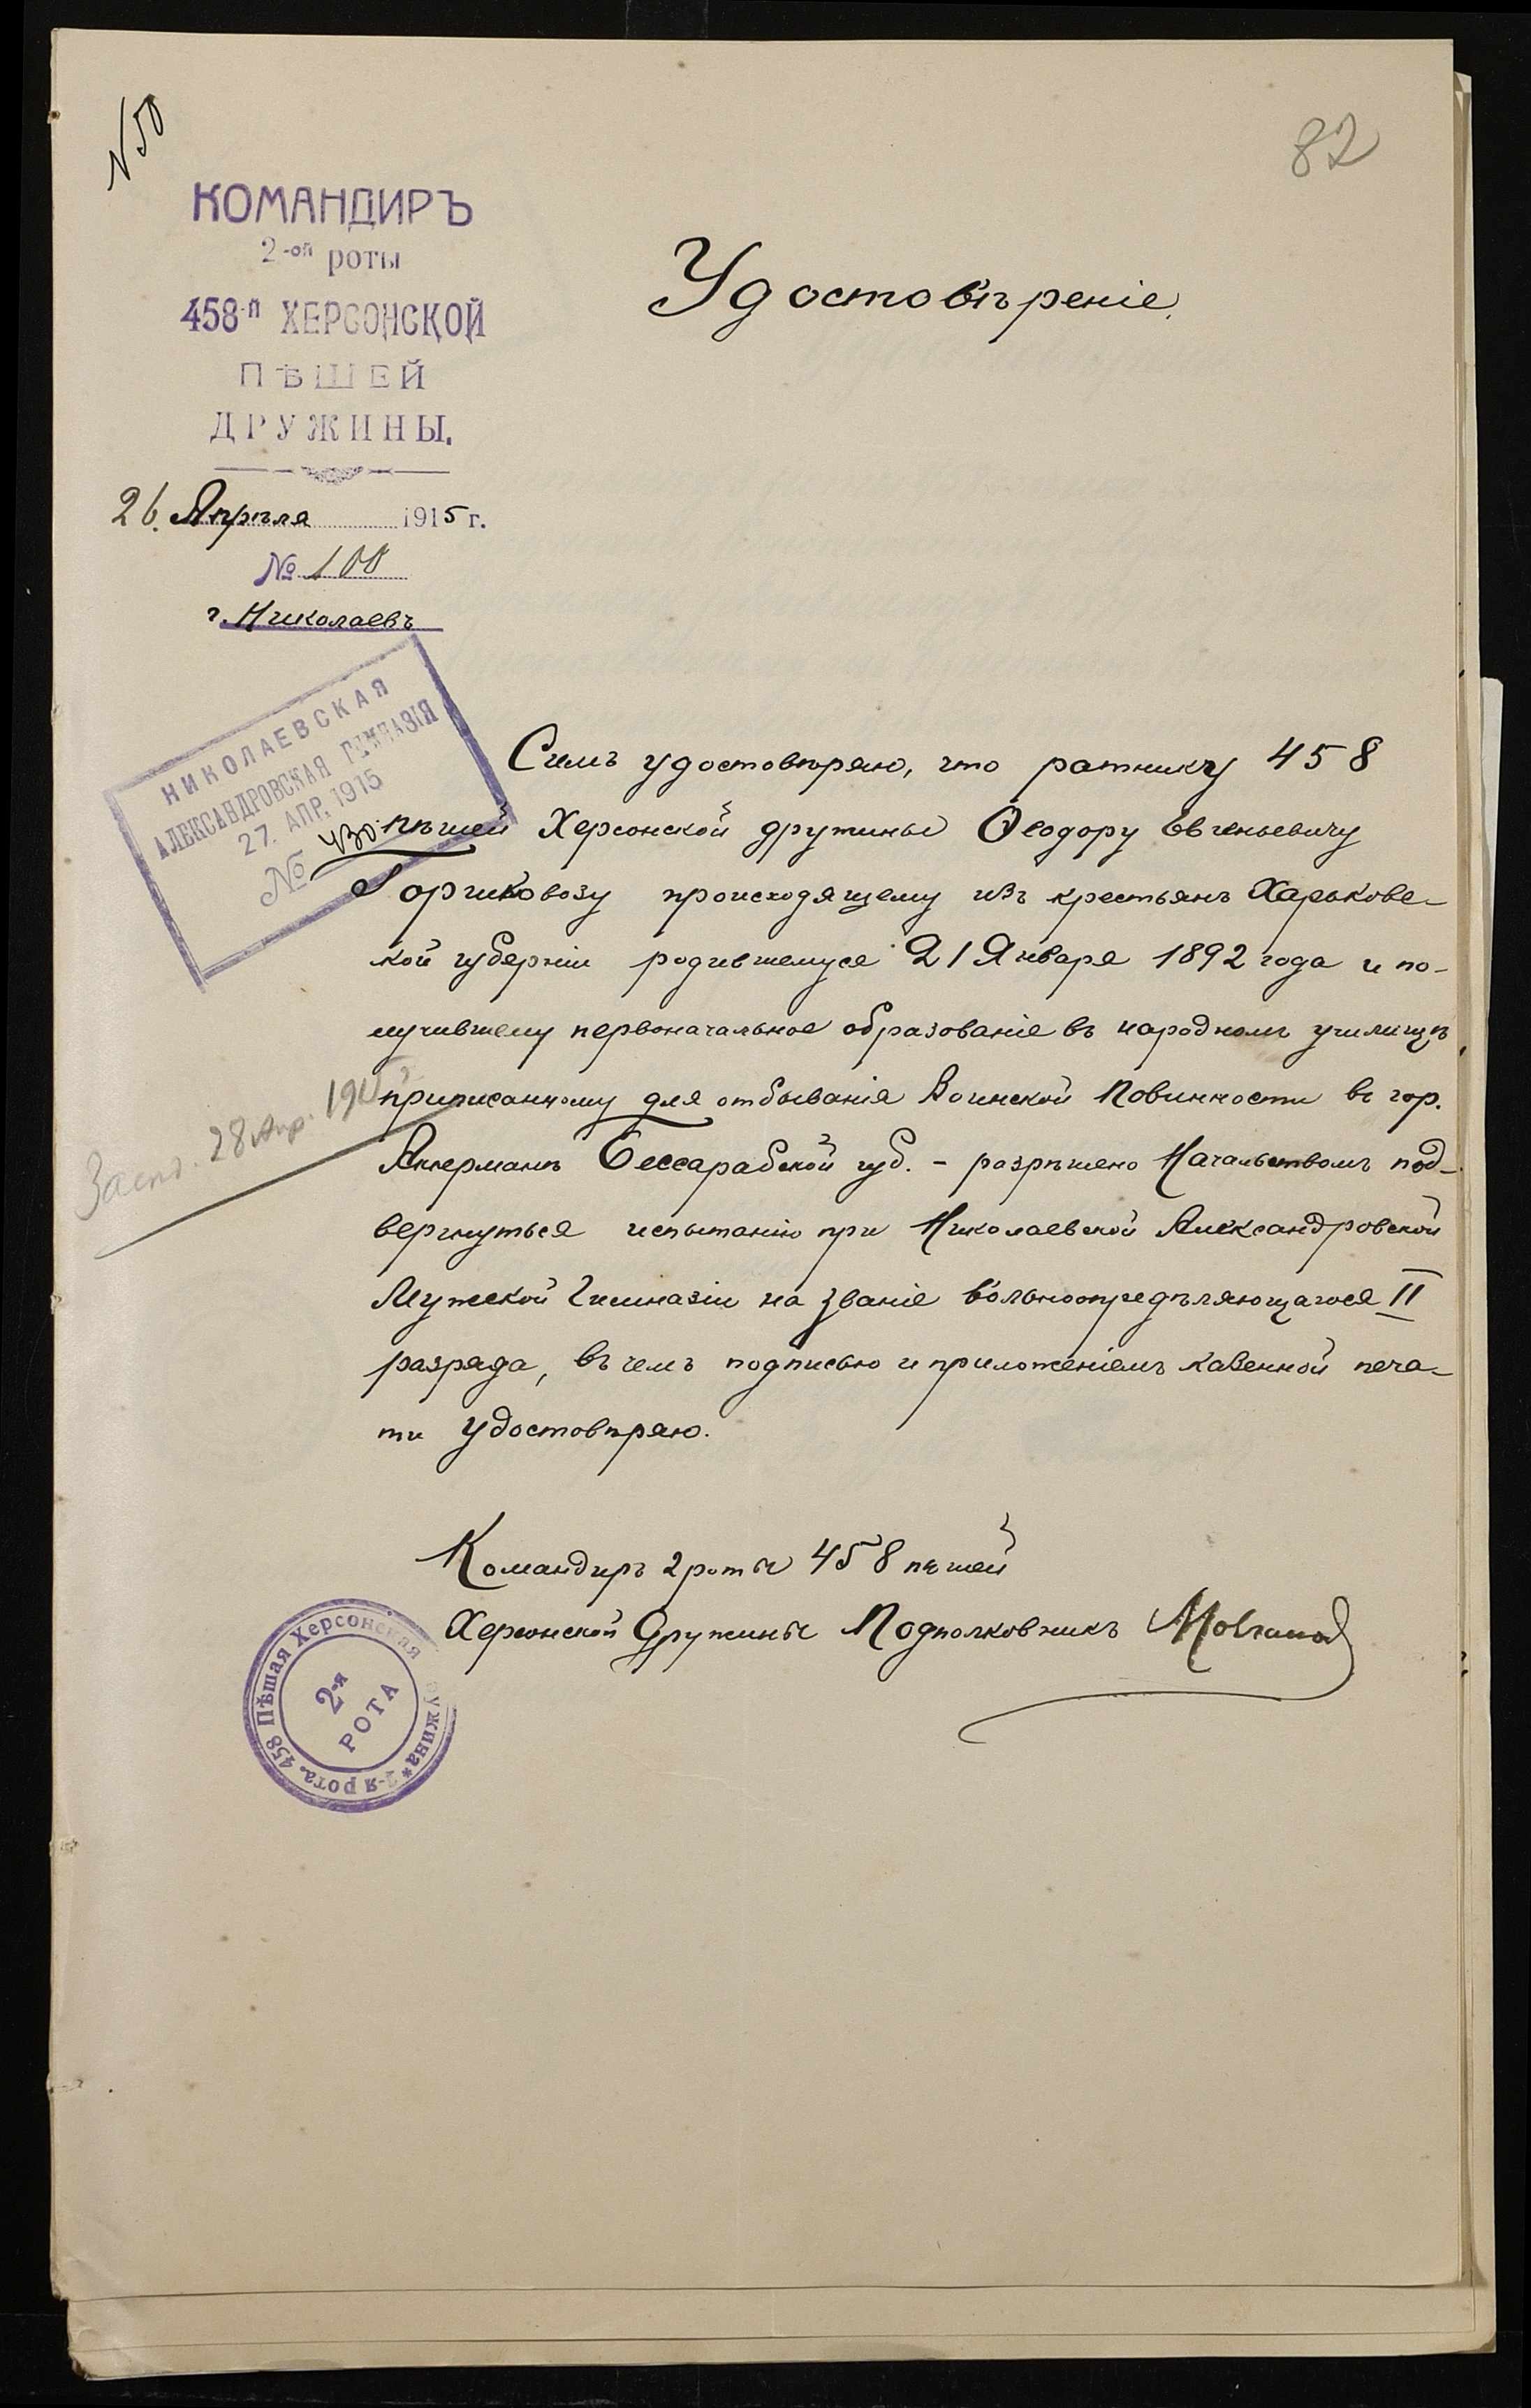 N 50
82
КОМАНДИРЪ
2-ой роты
458-й ХЕРСОНСКОЙ
ПѢШЕЙ
ДРУЖИНЫ.
26. Апрѣля 1915 г.
№ 100
г. Николаевъ
Удостовѣреніе.
НИКОЛАЕВСКАЯ
АЛЕКСАНДРОВСКАЯ ГИМНАЗІЯ
27. АПР. 1915
№ 430
Симъ удостовѣряю, что ратнику 458
пѣшей Херсонской дружины Ѳеодору Евгеньевичу
происходящему изъ крестьянъ Харьковс-
кой губерніи родившемуся 21 Января 1892 года и по-
лучившему первоначальное образованіе въ народномъ училищѣ,
приписанному для отбыванія Воинской Повинности въ гор.
Аккерманъ Бессарабской губ. - разрѣшено Начальствомъ под-
вергнуться испытанію при Николаевской Александровской
Мужской Гимназіи на званіе вольноопредѣляющагося II
разряда, въ чемъ подписью и приложеніемъ казенной печа-
ти удостовѣряю.
28 Апр. 1915
Командиръ 2 роты 458 пѣшей
Херсонской Дружины Подполковникъ
458 Пѣшая Херсонская дружина * 2-я рота.
2-я
РОТА